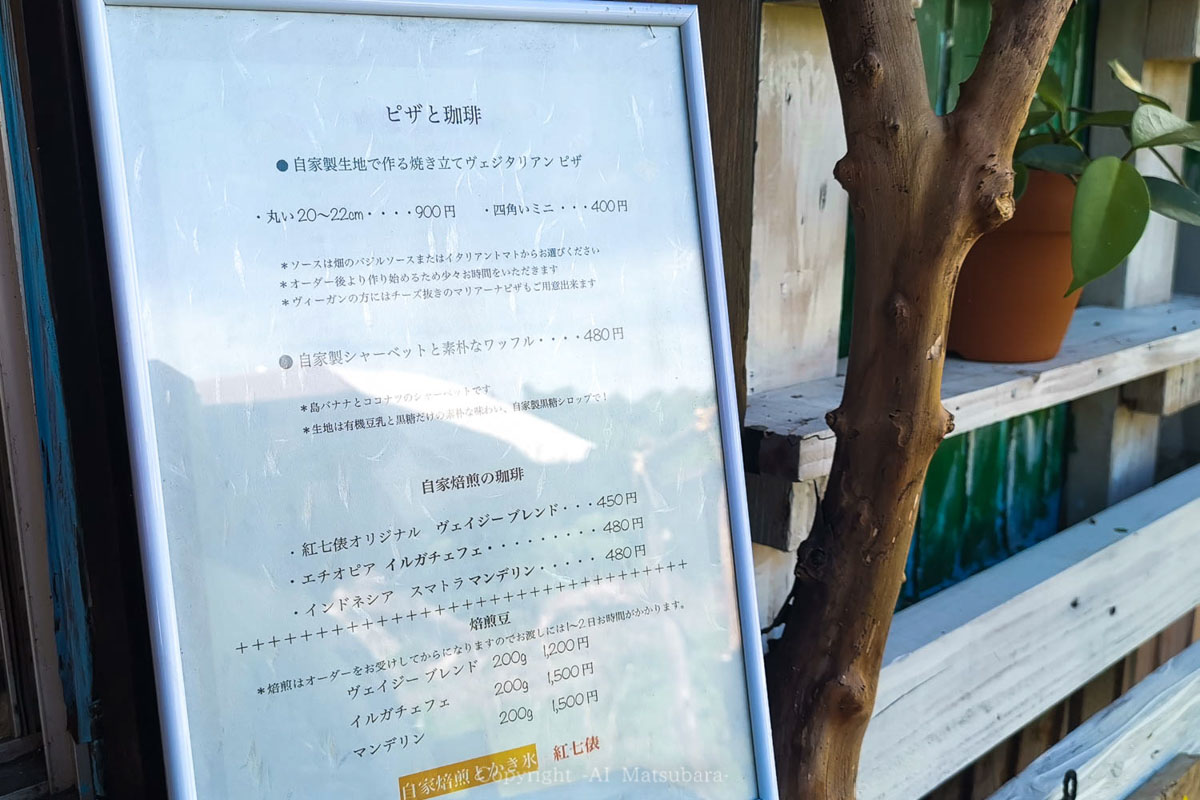 ピザと珈琲
●自家製生地で作る焼き立てヴェジタリアン ピザ
・丸い20〜22cm・・・・900円 ・四角いミニ・・・400円
＊ソースは畑のバジルソースまたはイタリアントマトからお選びください
＊オーダー後より作り始めるため少々お時間をいただきます
＊ヴィーガンの方にはチーズ抜きのマリアーナピザもご用意出来ます
●自家製シャーベットと素朴なワッフル・・・・480円
＊島バナナとココナツのシャーベットです
＊生地は有機豆乳と黒糖だけの素朴な味わい、自家製黒糖シロップで！
自家焙煎の珈琲
・紅七俵オリジナル ヴェイジーブレンド・・・450円
・エチオピア イルガチェフェ・・・・・・・・480円
・インドネシア スマトラマンデリン・・・・・480円
+++++++++++++++++++++++++++++
焙煎豆
＊焙煎はオーダーをお受けしてからになりますのでお渡しには1〜2日お時間がかかります。
ヴェイジーブレンド 200g 1,200円
イルガチェフェ 200g 1,500円
マンデリン 200g 1,500円
自家焙煎とかき氷 紅七俵
Copyright -AI Matsubara-